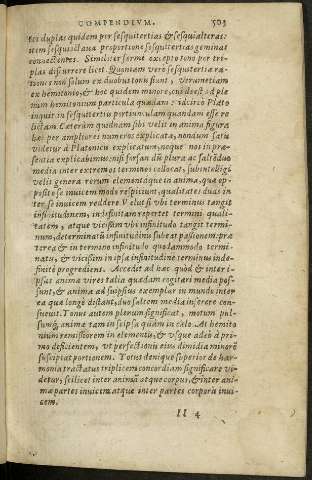 COMPENDIVM. 503
tes duplas quidem per sesquitertias & sesquialteras:
item sesquioctaua proportione sesquitertias geminat
connectentes. Similiter fermè excepto tono per tri-
plas discurrere licet. Quoniam verò sesquitertia ra-
tio nec non solum ex duobus tonis sunt, verumetiam
ex hemitonio, & hoc quidem minore, cui deest ad ple
num hemitonium particula quædam: idcirco Plato
inquit in sesquitertiis portiunculam quandam esse re
lictam. Cæterùm quidnam sibi velit in anima figura
hæc per ampliores numeros explicata, nondum satis
videtur à Platonicis explicatum, neque nos in præ-
sentia explicabimus: nisi forsan dũ plura ac saltẽ duo
media inter extremos terminos collocat, subintelligi
velit genera rerum elementaque in anima, quæ op-
posito se inuicem modo respiciunt, qualitates duas in
ter se inuicem reddere. Velut si vbi terminus tangit
infinitudinem, inde sua repertet termini quali-
tatem, atque vicissim vbi infinitudo tangit termi-
num, determinatũ infinitudinis subeat passionem: præ
terea & in termino infinitudo quodammodo termi-
natur, & vicissim in ipsa infinitudine terminus inde-
finitè progrediens. Accedit ad hæc quòd & inter i-
psas anima vires talia quædam cogitari media pos-
sunt, & animæ ad suipsius exemplar in mundo inter
ea quæ longè distant, duo saltem media inserere con-
sueuit. Tonus autem plenum significat, motum pul-
sumq́; anima tam in seipsa quàm in cælo. At hemito
nium remissiorem in elementis, & vsque adeò à pri-
mo deficientem, vt perfectionis eius dimidia minorẽ
suscipiat portionem. Totus denique superior de har-
monia tractatus triplicem concordiam significare vi-
detur, scilicet inter animã atque corpus, & inter ani-
mæ partes inuicem atque inter partes corporis inui-
cem.
ll 4